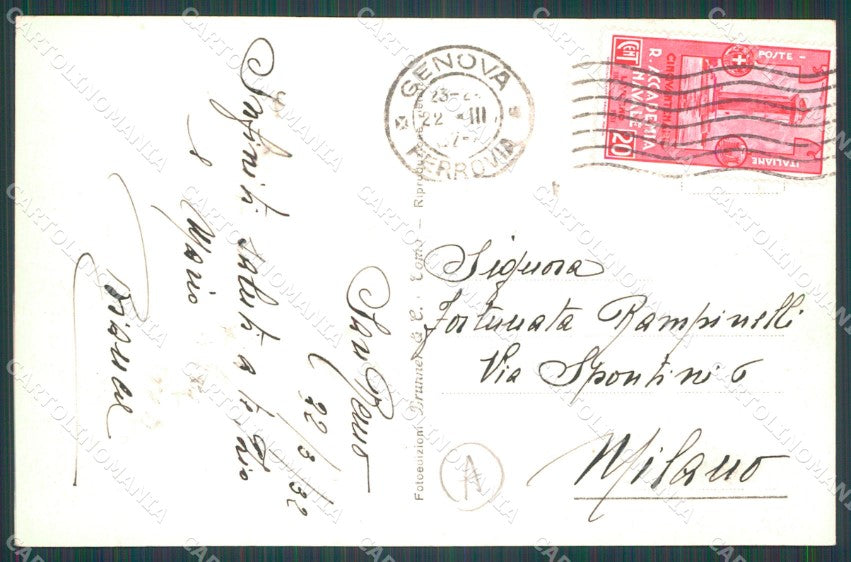 San Remo
22/3/32
Infiniti saluti a te, Pio
e Mario
GENOVA
FERROVIA
22 III
POSTE
ITALIANE
R. ACCADEMIA
NAVALE
CENT
20
Signora
Fortunata Rampinelli
Via Spontini 6
Milano
Fotoedizioni Brunner & C. Como – Riproduzione
A
CARTOLINOMANIA